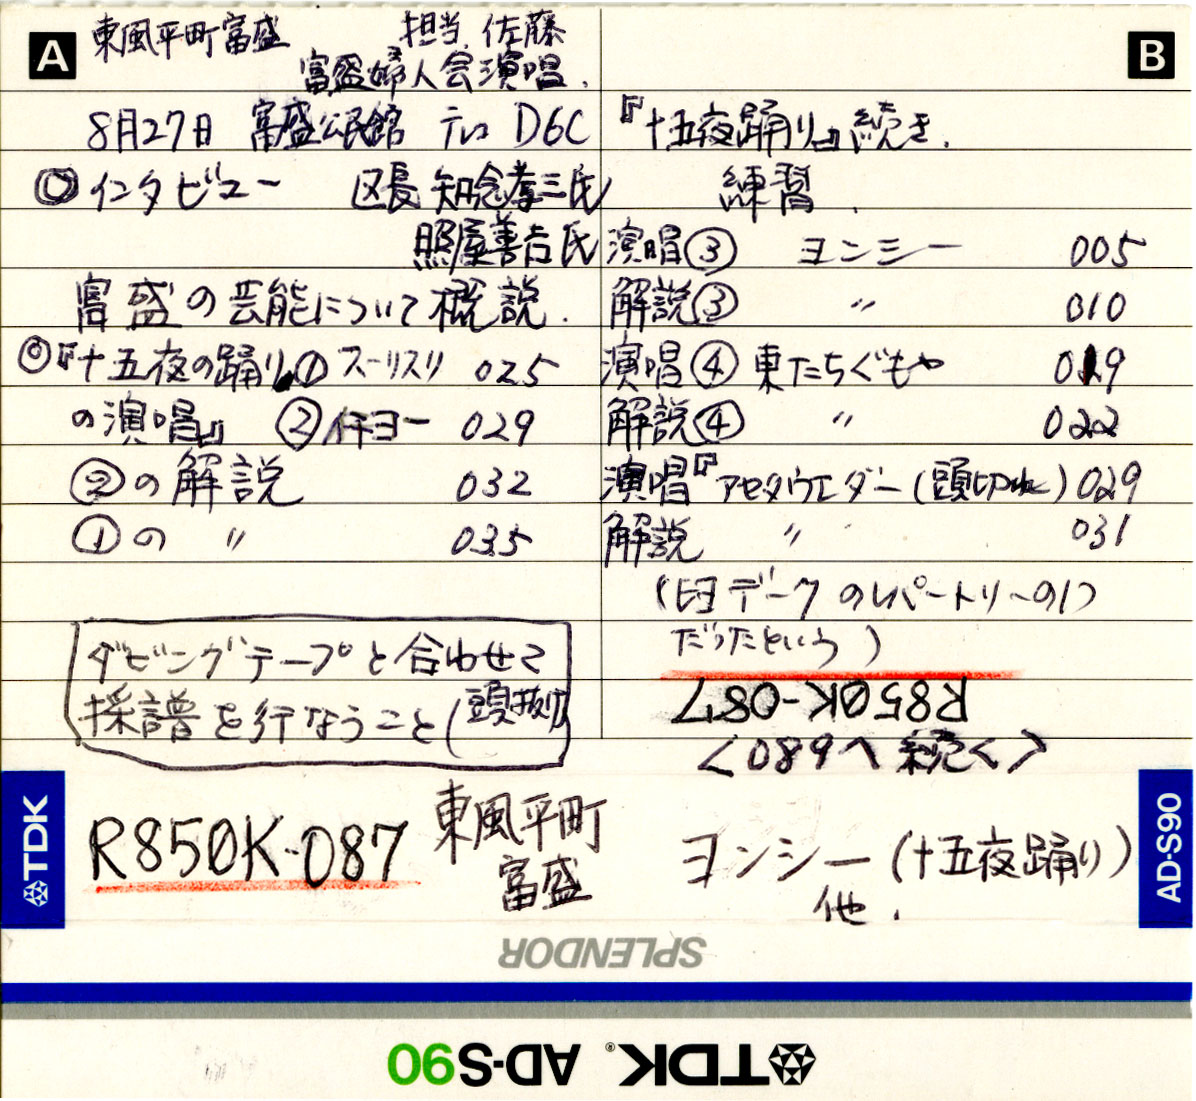 A
東風平町富盛 担当 佐藤
富盛婦人会演唱.
8月27日 富盛公民館 テレコ D6C
◎インタビュー 区長 知念孝三氏
照屋善吉氏
富盛の芸能について概説.
◎『十五夜の踊り ① スーリスリ 025
の演唱』 ② 仟ヨー 029
②の解説 032
①の 〃 035
ダビングテープと合わせて
採譜を行なうこと(頭抜け)
B
『十五夜踊り』続き.
練習.
演唱③ ヨンシー 005
解説③ 〃 010
演唱④ 東たちぐもや 019
解説④ 〃 022
演唱『アセタウエダー(頭切れ) 029
解説 〃 031
(旧ヨデークのレパートリーの1つ
だったという)
R850K-087
<089へ続く>
TDK
R850K-087
東風平町
富盛
ヨンシー(十五夜踊り)
他.
AD-S90
SPLENDOR
TDK® AD-S90